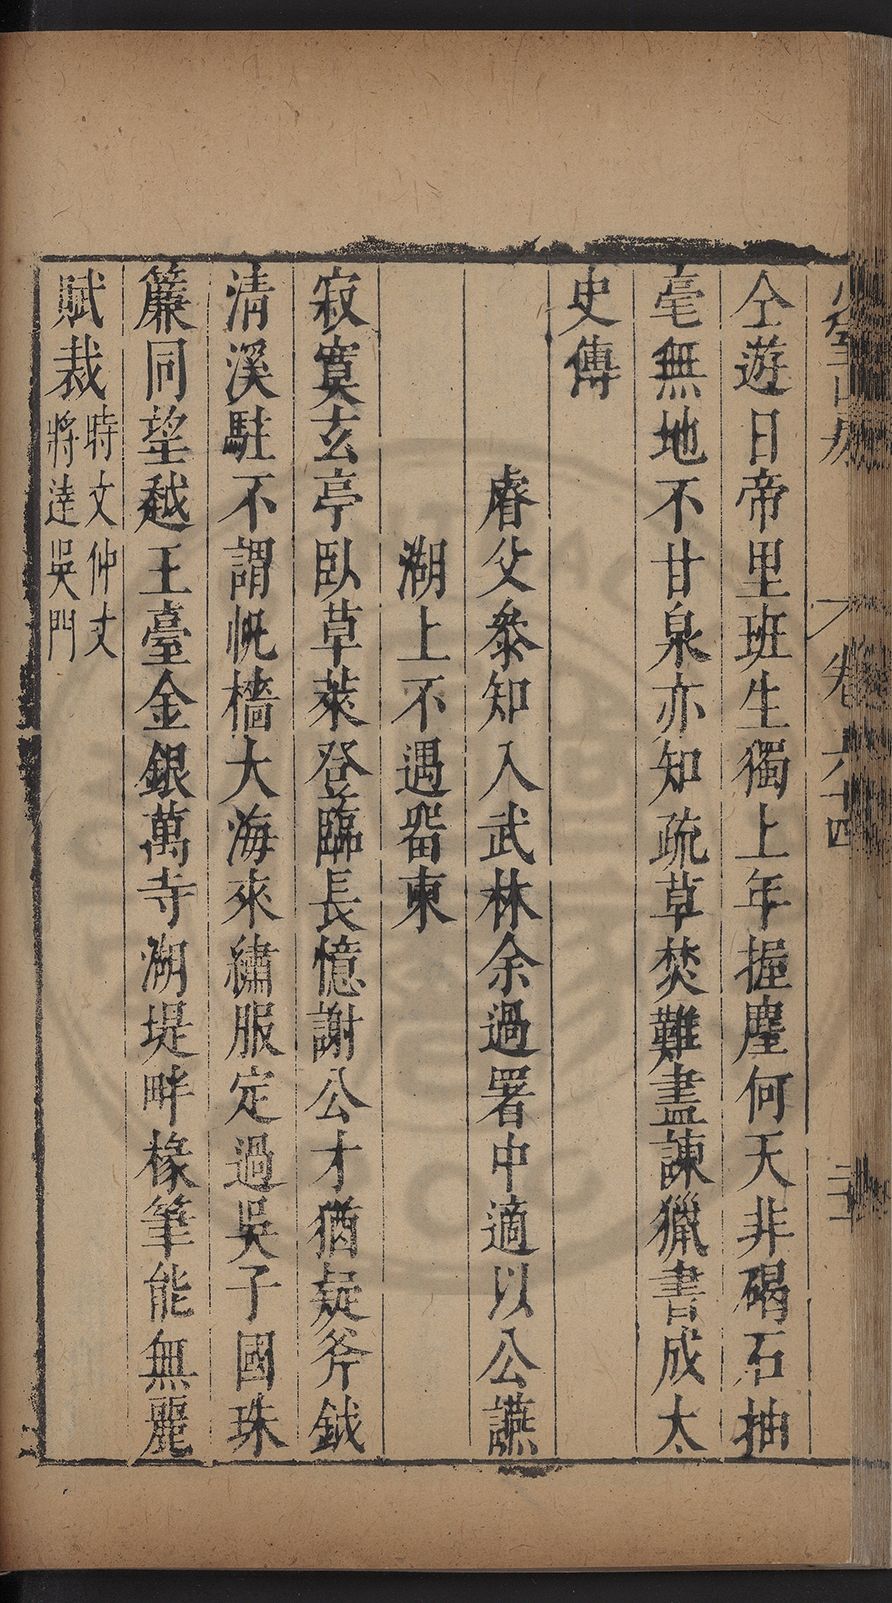 卷六十四
仝遊日帝里班生獨上年握塵何天非碣石抽
毫無地不甘泉亦知疏草焚難盡諫獵書成太
史傳
睿父叅知入武林余過署中適以公讌
湖上不遇畱柬
寂寞玄亭臥草萊登臨長憶謝公才猶疑斧鉞
清溪駐不謂帆檣大海來繡服定過吳子國珠
簾同望越王臺金銀萬寺湖堤畔椽筆能無麗
賦裁時文仲丈
將達吳門